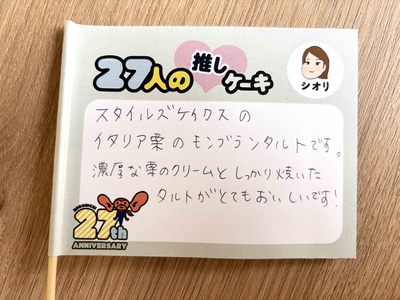 27人の推しケーキ
シオリ
スタイルズケイクス の
イタリア栗 の モンブランタルトです。
濃厚な栗のクリームと しっかり焼いた
タルトが とてもおいしいです!
27th
ANNIVERSARY